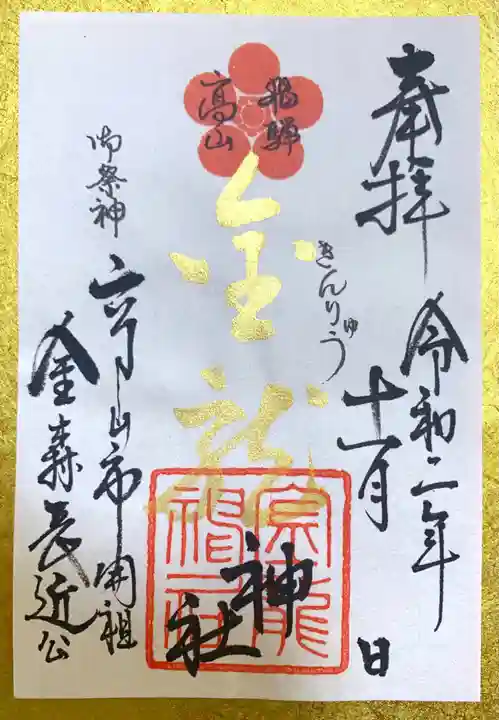 奉拝
令和二年
十一月 日
飛騨
高山
金龍
きんりゅう
神社
御祭神
高山市開祖
金森長近公